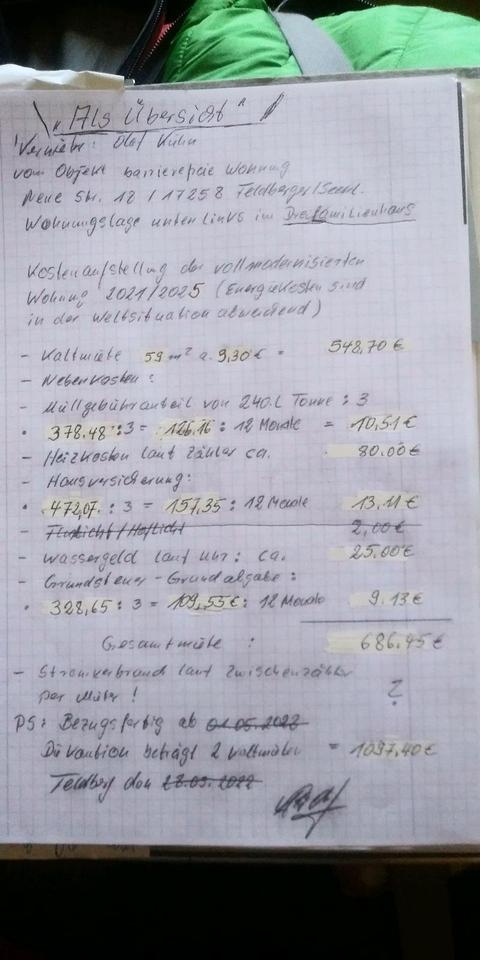 "Als Übersicht"
Vermieter: Olaf Kuhn
vom Objekt barrierefreie Wohnung
Neue Str. 12 / 17258 Feldberger/Seenl.
Wohnungslage unten links im Dreifamilienhaus
Kostenaufstellung der vollmodernisierten
Wohnung 2021/2025 (Energiekosten sind
in der Weltsituation abweichend)
- Kaltmiete 59 m² a. 9,30 € = 548,70 €
- Nebenkosten:
- Müllgebühranteil von 240.L Tonne : 3
• 378.48 : 3 = 126.16 : 12 Monate = 10,51 €
- Heizkosten laut Zähler ca. 80.00 €
- Hausversicherung:
• 472,07. : 3 = 157,35 : 12 Monate 13.11 €
- Flurlicht / Hoflicht 2,00 €
- Wassergeld laut Uhr: ca. 25.00 €
- Grundsteuer - Grundabgabe :
• 328,65 : 3 = 109,55 € : 12 Monate 9.13 €
Gesamtmiete : 686.45 €
- Stromverbrauch laut Zwischenzähler
per Mieter ! ?
PS: Bezugsfertig ab 01.05.2022
Die Kaution beträgt 2 Kaltmieten = 1097.40 €
Feldberg den 28.03.2022